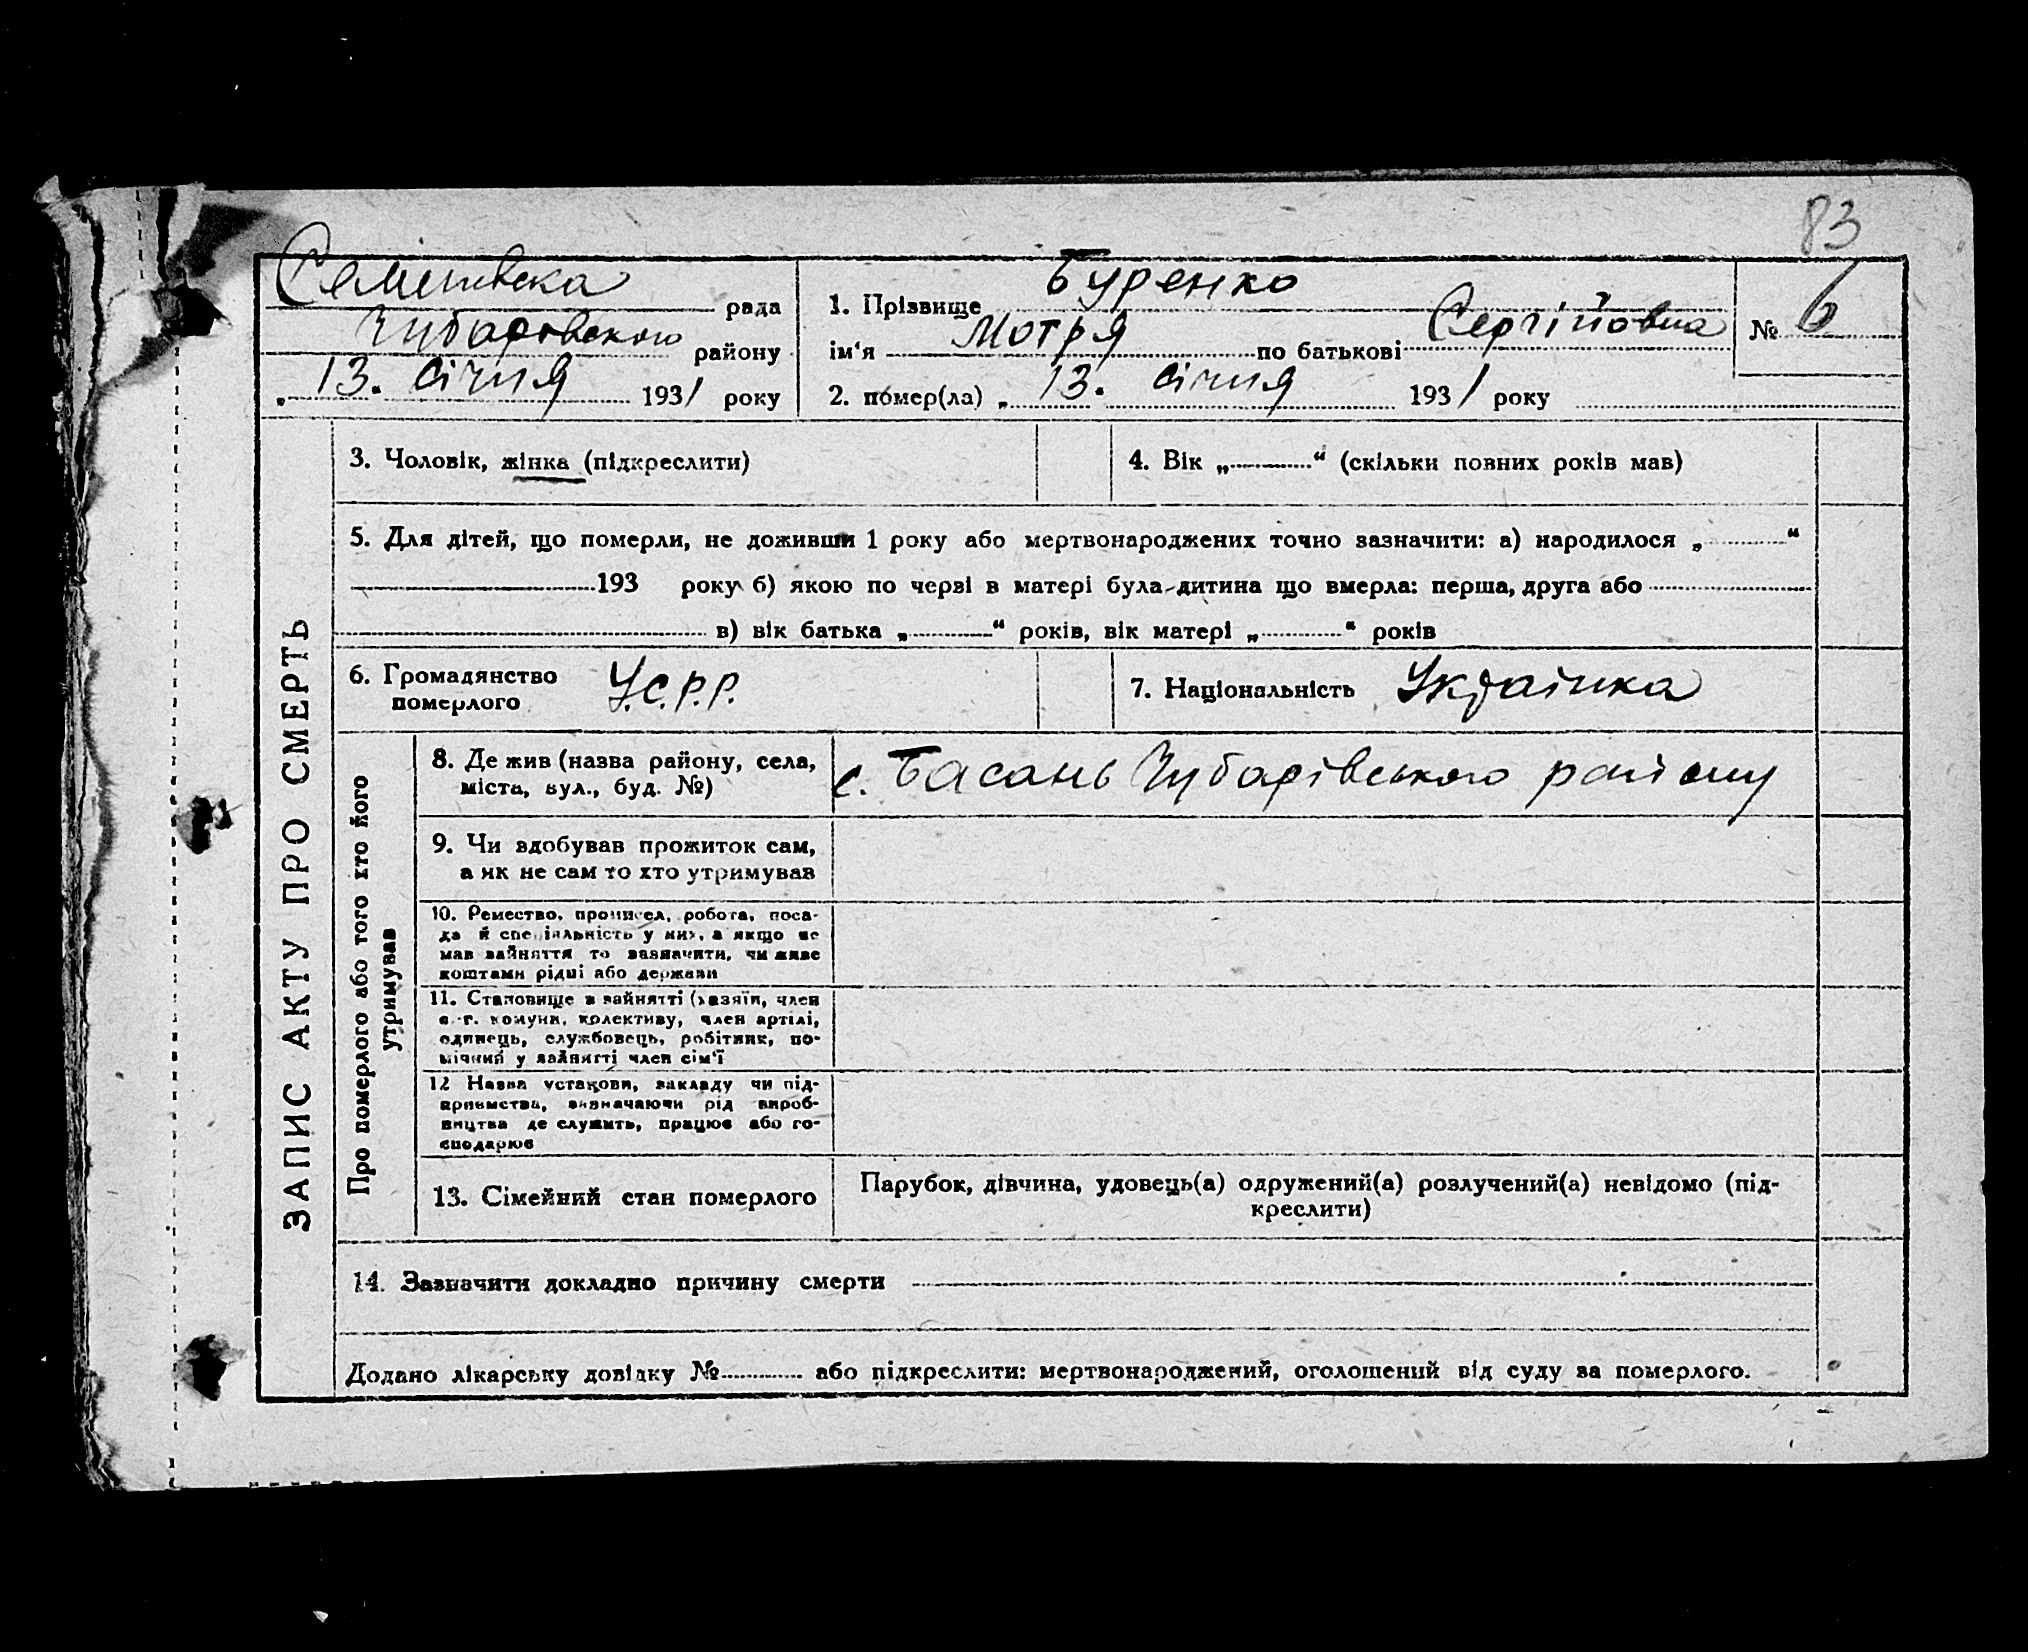 83
Семенівска рада
Чубаровською району
„ 13. січня 1931 року
1. Прізвище Буренко
ім'я Мотря по батькові Сергійовна
№ 6
2. помер(ла) „ 13. січня 1931 року
ЗАПИС АКТУ ПРО СМЕРТЬ
3. Чоловік, жінка (підкреслити)
4. Вік „ “ (скільки повних років мав)
5. Для дітей, що померли, не доживши 1 року або мертвонароджених точно зазначити: а) народилося „ “
193 року б) якою по черві в матері була дитина що вмерла: перша, друга або
в) вік батька „ “ років, вік матері „ “ років
6. Громадянство
померлого У.С.Р.Р.
7. Національність Українка
Про померлого або того хто його
утримував
8. Де жив (назва району, села,
міста, вул., буд. №)
с. Басань Чубарівського району
9. Чи здобував прожиток сам,
а як не сам то хто утримував
10. Ремество, промисел, робота, поса-
да й спеціяльність у них, а якщо не
мав зайняття то зазначити, чи живе
коштами рідні або держави
11. Становище в зайнятті (хазяїн, член
с.-г. комуни, колективу, член артілі,
одинець, службовець, робітник, по-
мічний у зайнятті член сім'ї
12 Назва установи, закладу чи під-
приємства, визначаючи рід вироб-
ництва де служить, працює або го-
сподарює
13. Сімейний стан померлого
Парубок, дівчина, удовець(а) одружений(а) розлучений(а) невідомо (під-
креслити)
14. Зазначити докладно причину смерти
Додано лікарську довідку № або підкреслити: мертвонароджений, оголошений від суду за померлого.